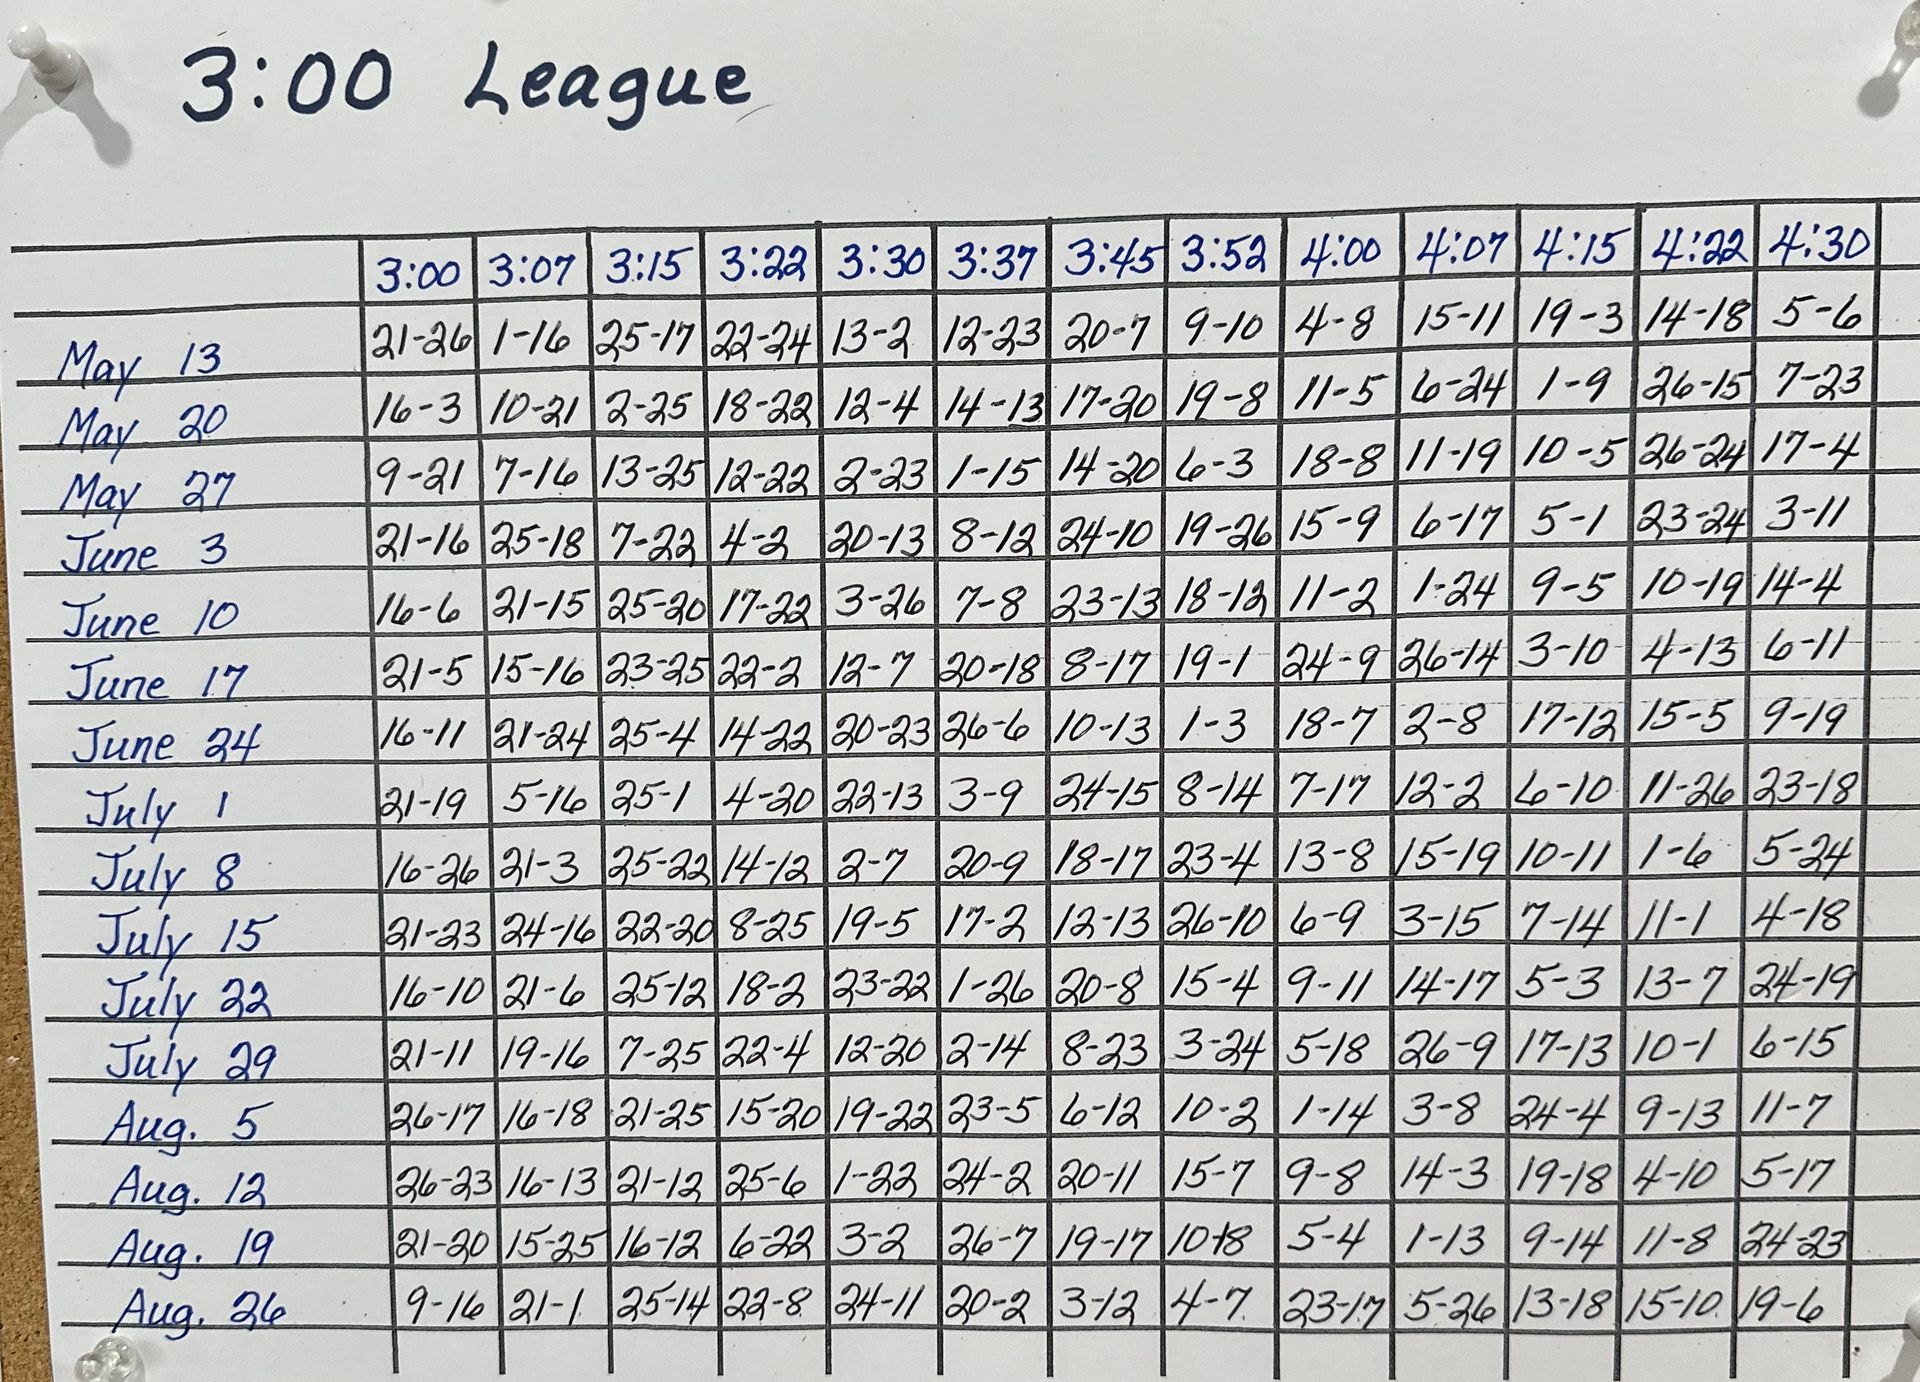 3:00 League
3:00 3:07 3:15 3:22 3:30 3:37 3:45 3:52 4:00 4:07 4:15 4:22 4:30
May 13 21-26 1-16 25-17 22-24 13-2 12-23 20-7 9-10 4-8 15-11 19-3 14-18 5-6
May 20 16-3 10-21 2-25 18-22 12-4 14-13 17-20 19-8 11-5 6-24 1-9 26-15 7-23
May 27 9-21 7-16 13-25 12-22 2-23 1-15 14-20 6-3 18-8 11-19 10-5 26-24 17-4
June 3 21-16 25-18 7-22 4-2 20-13 8-12 24-10 19-26 15-9 6-17 5-1 23-24 3-11
June 10 16-6 21-15 25-20 17-22 3-26 7-8 23-13 18-12 11-2 1-24 9-5 10-19 14-4
June 17 21-5 15-16 23-25 22-2 12-7 20-18 8-17 19-1 24-9 26-14 3-10 4-13 6-11
June 24 16-11 21-24 25-4 14-22 20-23 26-6 10-13 1-3 18-7 2-8 17-12 15-5 9-19
July 1 21-19 5-16 25-1 4-20 22-13 3-9 24-15 8-14 7-17 12-2 6-10 11-26 23-18
July 8 16-26 21-3 25-22 14-12 2-7 20-9 18-17 23-4 13-8 15-19 10-11 1-6 5-24
July 15 21-23 24-16 22-20 8-25 19-5 17-2 12-13 26-10 6-9 3-15 7-14 11-1 4-18
July 22 16-10 21-6 25-12 18-2 23-22 1-26 20-8 15-4 9-11 14-17 5-3 13-7 24-19
July 29 21-11 19-16 7-25 22-4 12-20 2-14 8-23 3-24 5-18 26-9 17-13 10-1 6-15
Aug. 5 26-17 16-18 21-25 15-20 19-22 23-5 6-12 10-2 1-14 3-8 24-4 9-13 11-7
Aug. 12 26-23 16-13 21-12 25-6 1-22 24-2 20-11 15-7 9-8 14-3 19-18 4-10 5-17
Aug. 19 21-20 15-25 16-12 6-22 3-2 26-7 19-17 10-18 5-4 1-13 9-14 11-8 24-23
Aug. 26 9-16 21-1 25-14 22-8 24-11 20-2 3-12 4-7 23-17 5-26 13-18 15-10 19-6